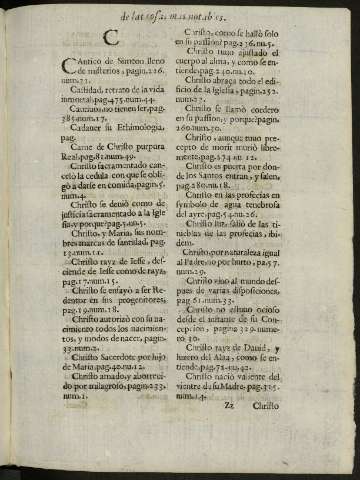 de las cosas mas notables.
C
CAntico de Simeon lleno
de misterios, pag.226.
num.22.
Castidad, retrato de la vida
inmortal, pag.475.num.44.
Cautiuos, no tienen ser, pag.
385.num.17.
Cadauer su Ethimologia,
pag.
Carne de Christo purpura
Real, pag.82.num.49.
Christo sacramentado can-
celò la cedula con que se obli-
gò a darse en comida, pagin.5.
num.4.
Christo se deuiò como de
justicia sacramentado a la Igle
sia, y porque? pag.5.nu.5.
Christo, y Maria, les nom-
bres marcas de santidad, pag.
13.nu.11.
Christo rayz de Iesse, des-
ciende de Iesse como de rayz,
pag.17.num.15.
Christo se ensayò a ser Re-
dentor en sus progenitores,
pag.19.num.18.
Christo autorizò con su na-
cimiento todos los nacimien-
tos, y modos de nacer, pagin-
33.num.2.
Christo Sacerdote por hijo
de Maria, pag.40.nu.12.
Christo amado, y aborreci-
do por milagroso, pagin.233.
num.1.
Christo, como se hallò solo
en su passion? pag.236.nu.5.
Christo tuuo ajustado el
cuerpo al alma, y como se en-
tiende, pag.240.nu.10.
Christo abraça todo el edi-
ficio de la Iglesia, pagin.252.
num.27.
Christo se llamò cordero
en su passion, y porque? pagin.
260.num.30.
Christo, aunque tuuo pre-
cepto de morir muriò libre-
mente, pag.274.nu.12.
Christo es puerta por don-
de los Santos entran, y salen,
pag.280.nu.18.
Christo en las profecias en
symbolo de agua tenebrosa
del ayre, pag.54.nu.26.
Christo luz, saliò de las ti-
nieblas de las profecias, ibi-
dem.
Christo, por naturaleza igual
al Padre, no por hurto, pa.57.
num.29.
Christo vino al mundo des-
pues de varias disposiciones,
pag.61.num.33.
Christo no estuuo ocioso
desde el instante de su Con-
cepcion, pagina 329. nume-
ro 30.
Christo rayz de Dauid, y
luzero del Alua, como se en-
tiende, pag.72.nu.42.
Christo naciò valiente del
vientre de su Madre, pag.325.
num.14.
Zz Christo